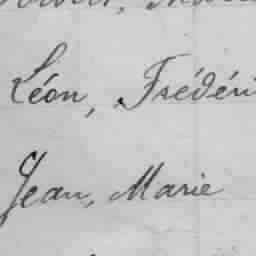 Léon, Frédéri
Jean, Marie